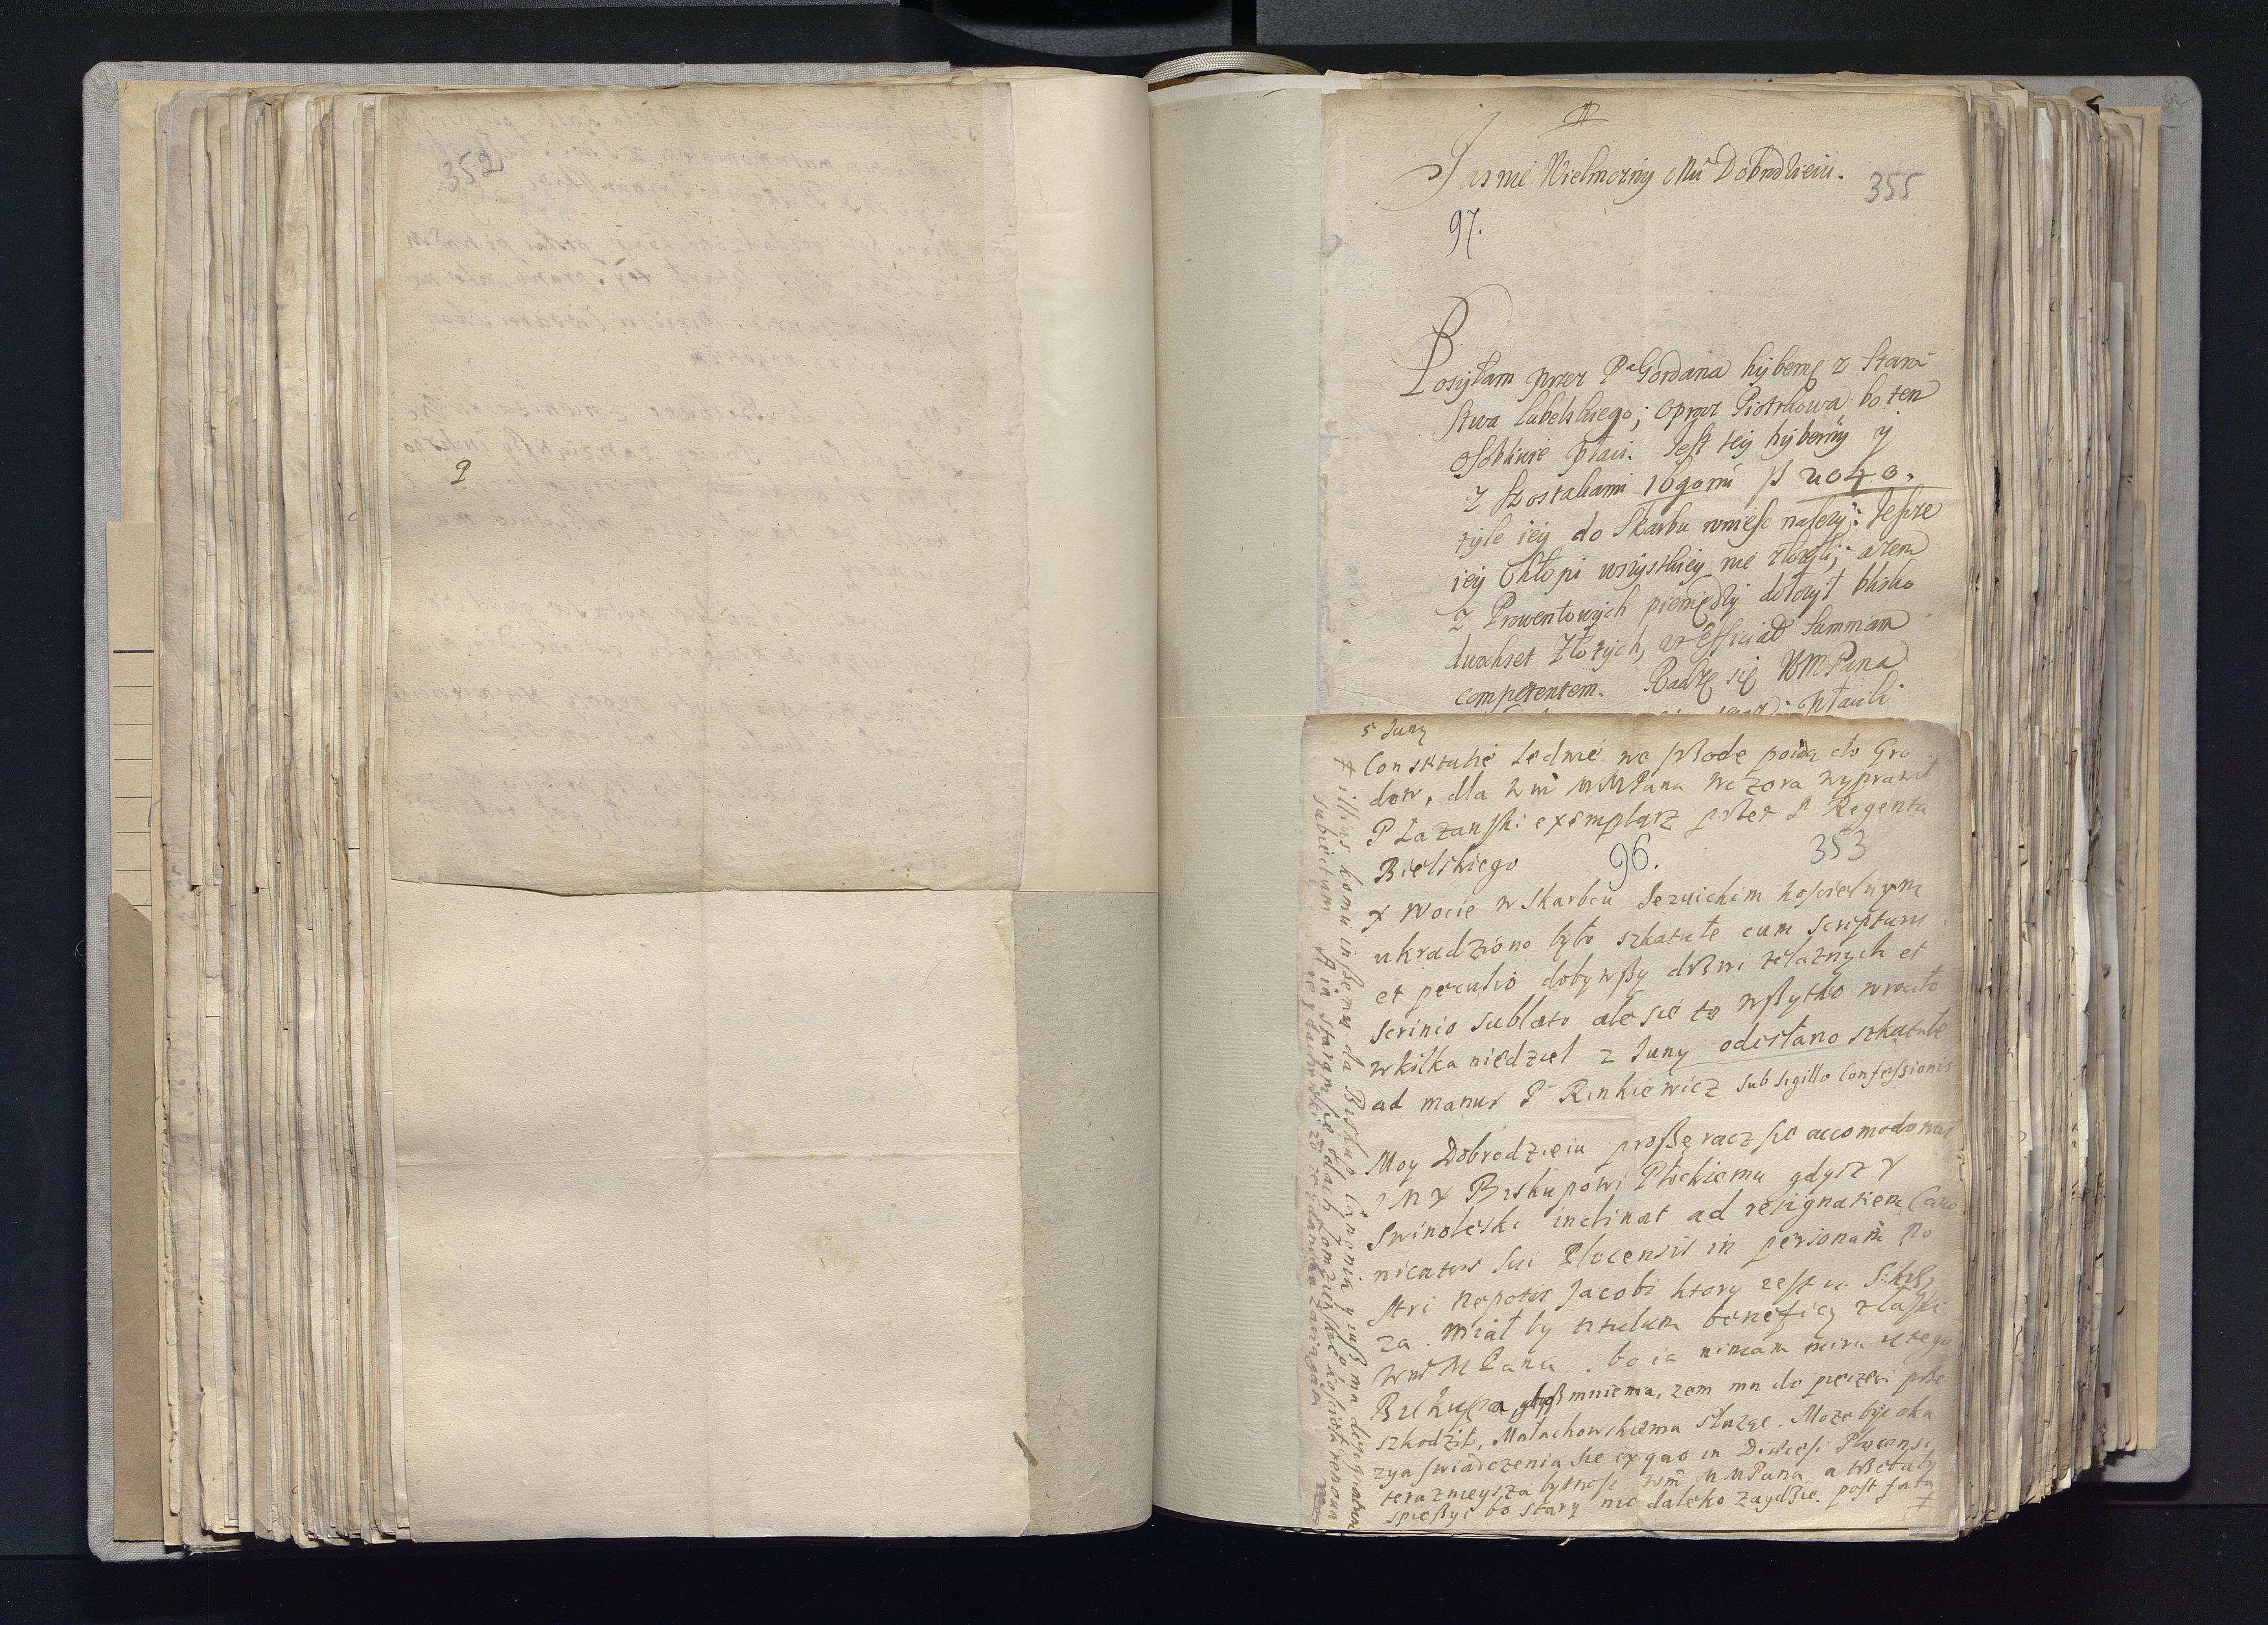 352
Jasnie Wielmozny Mu Dobrodzieiu.
355
97.
Posyłam przez Pa Gordana hybernę z Staro
stwa Lubelskiego; oprocz Piotrkowa bo ten
osobliwie płaci. Jest tey hyberny y
z Szostakami 16gomi 2040.
tyle iey do Skarbu wniesc nalezy: Jescze
iey Chłopi wszystkiey nie złozyli; azem
z Prowentowych pieniędzy dołozył blisko
dwochset Złotych, ut efficiat Summam
competentem. Radzę się WMPana
płacili
5 Juny
Constitutie ledwie we szrodę poidą do Gro
dow, dla WMPana wczora wyprawił
P Łazanski exemplarz przez P Regenta
Bielskiego
96.
353
x Wocie w Skarbcu Jezuickim Koscielnym
ukradziono było szkatułe cum scripturis
et peculio dobywszy drzwi zelaznych et
scrinio sublato ale sie to wszytko wrociło
w kilka niedziel 2 Juny odesłano szkatułe
ad manus P Rinkiewicz sub sigillo Confessionis
Moy Dobrodzieiu proszę racz sie accomodowac
J M X Biskupowi Płockiemu gdysz X
Swinoleski inclinat ad resignationem Cano
nicatus sui Plocensis in personam No
stri Nepotis Jacobi ktory iest u S: Krzy
za. miał by titulum beneficy z łaski
WM Pana: bo ia nimam miru u tego
Biskupa mniema, zem mu do pieczeci prze
szkodził, Małachowskiemu słuząc. Moze byc oka
zya swiadczenia sie ex quo in Diœcesi Plocensi
teraznieysza bytnosc WM MPana, a trzeba by
spieszyc bo stary nie daleko zaydzie. post fata
‡
‡ illius komu inszemu da Biskup Canonią y iusz ma designatum
subiectum